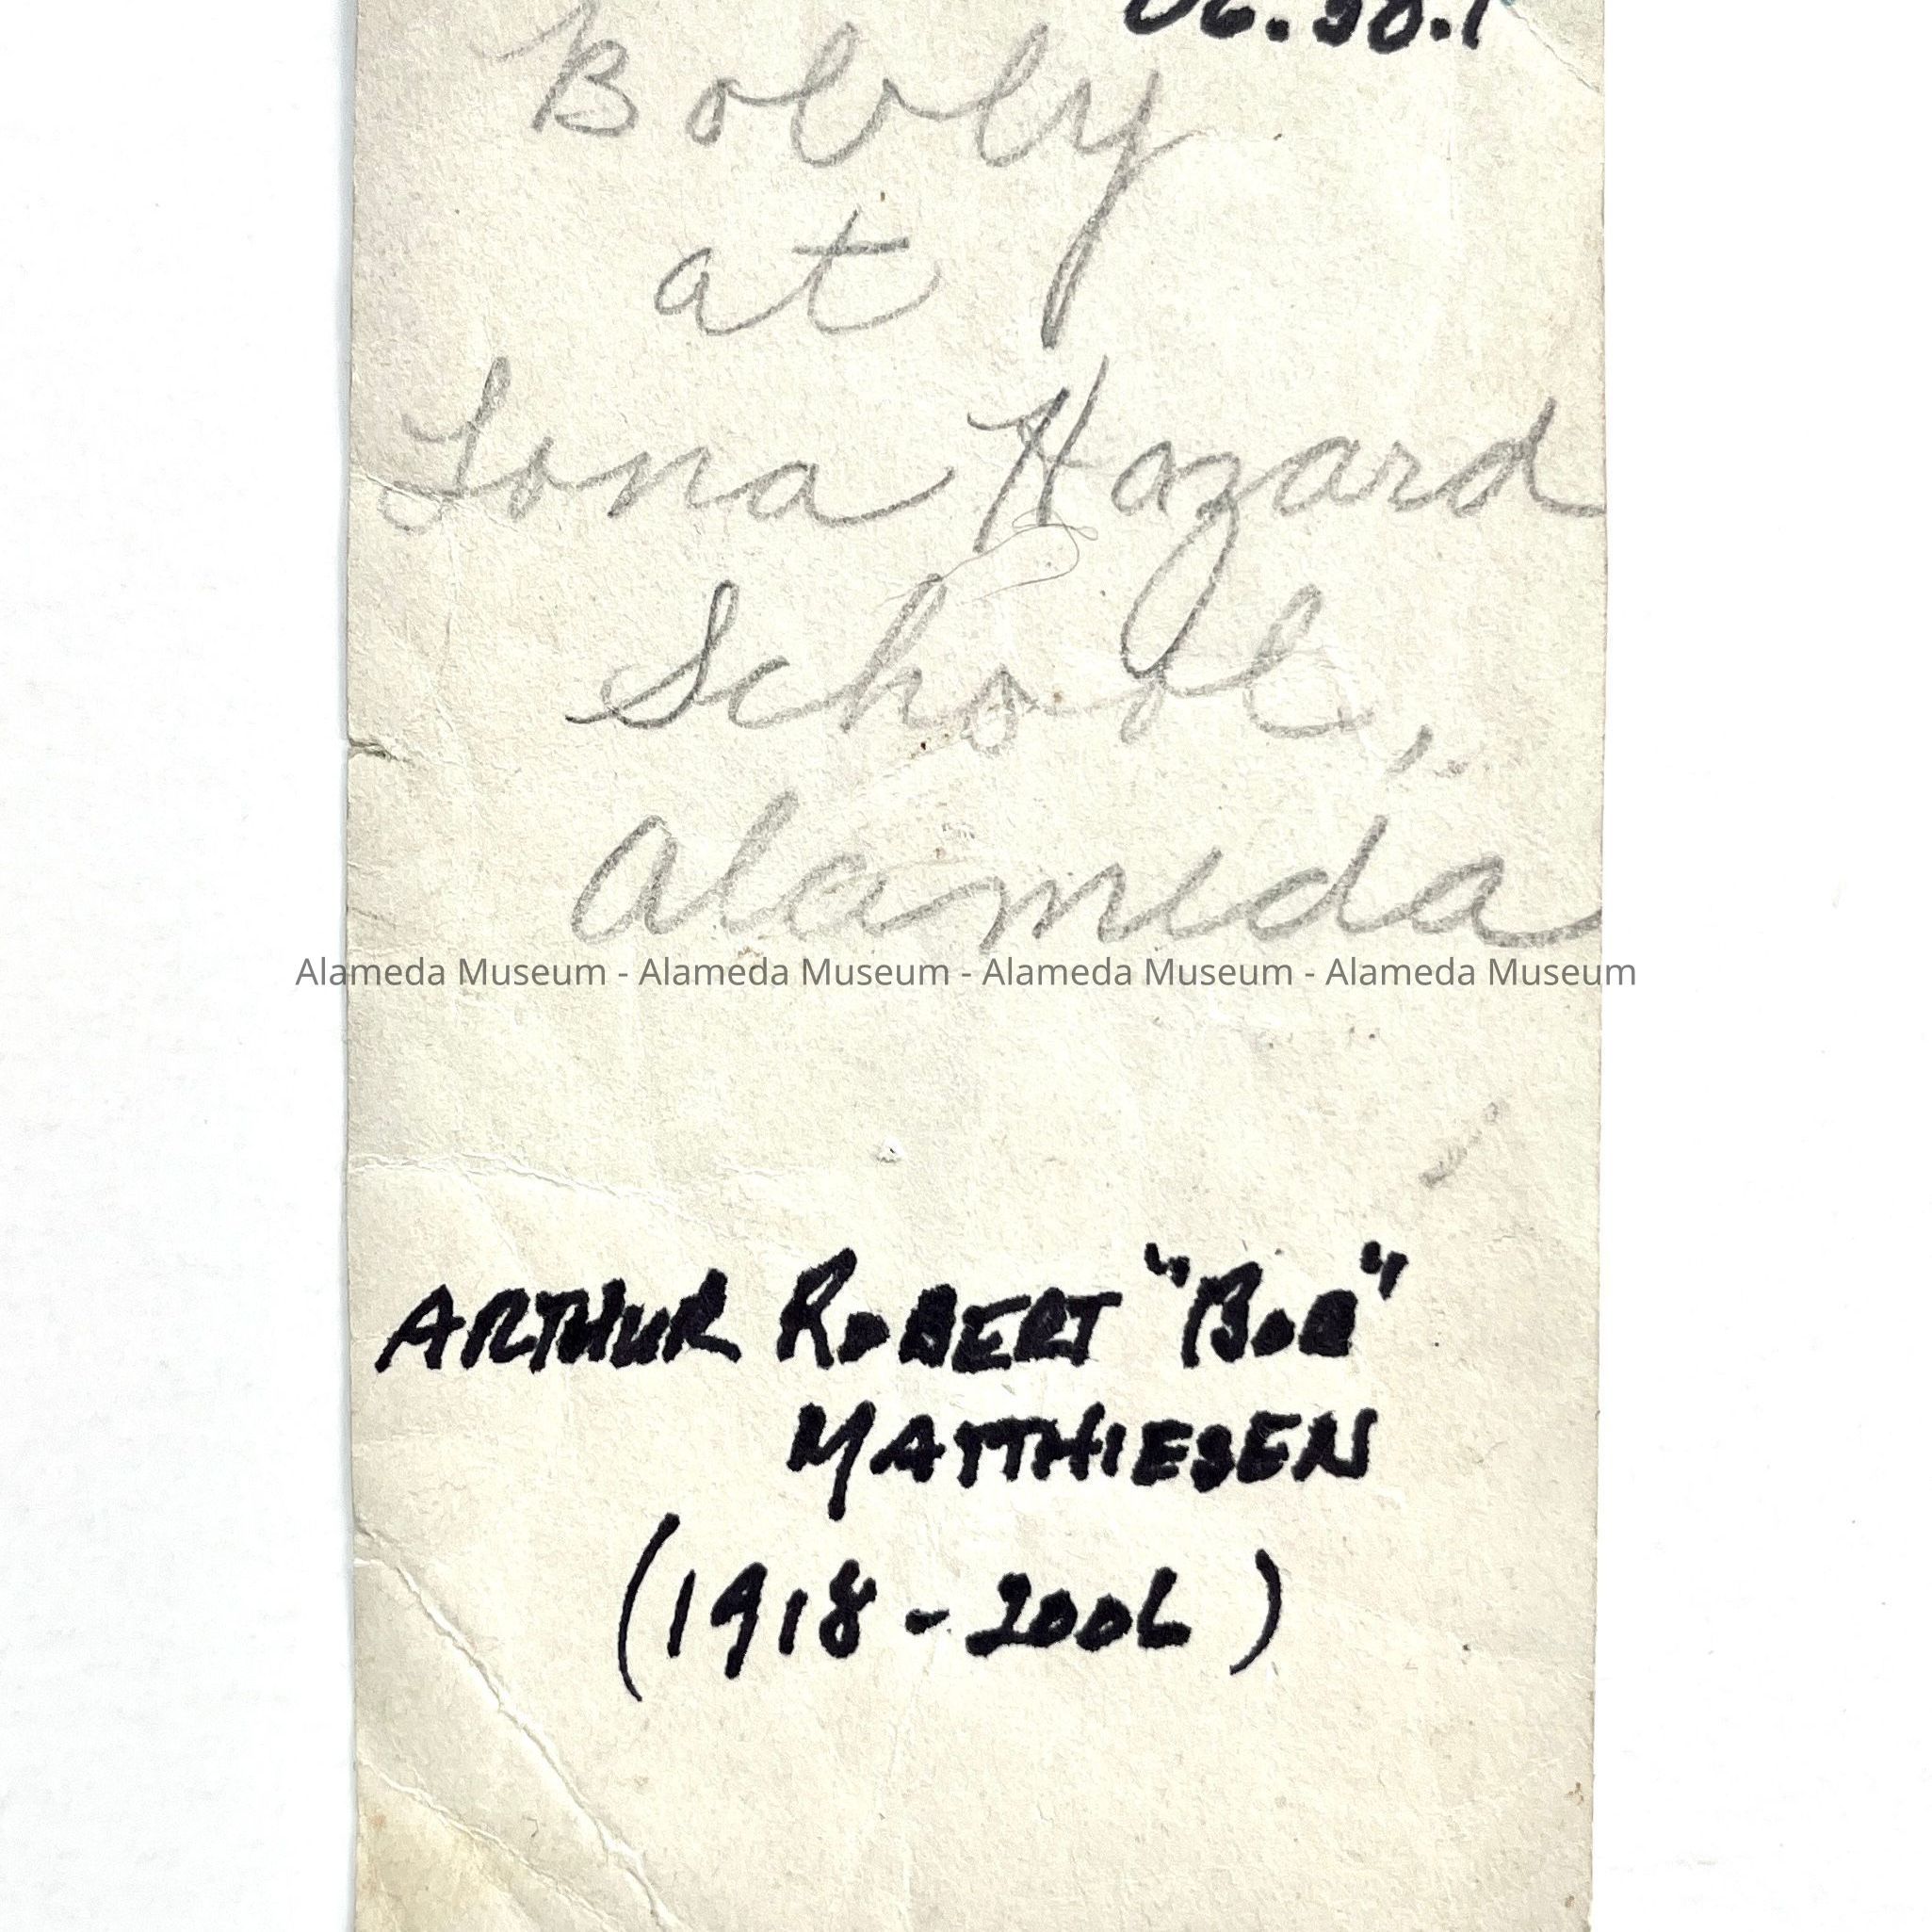 06.30.1
Bobby
at
Lona Hazard
School,
Alameda
Alameda Museum - Alameda Museum - Alameda Museum - Alameda Museum
ARTHUR ROBERT "BOB"
MATTHIESEN
(1918-2006)